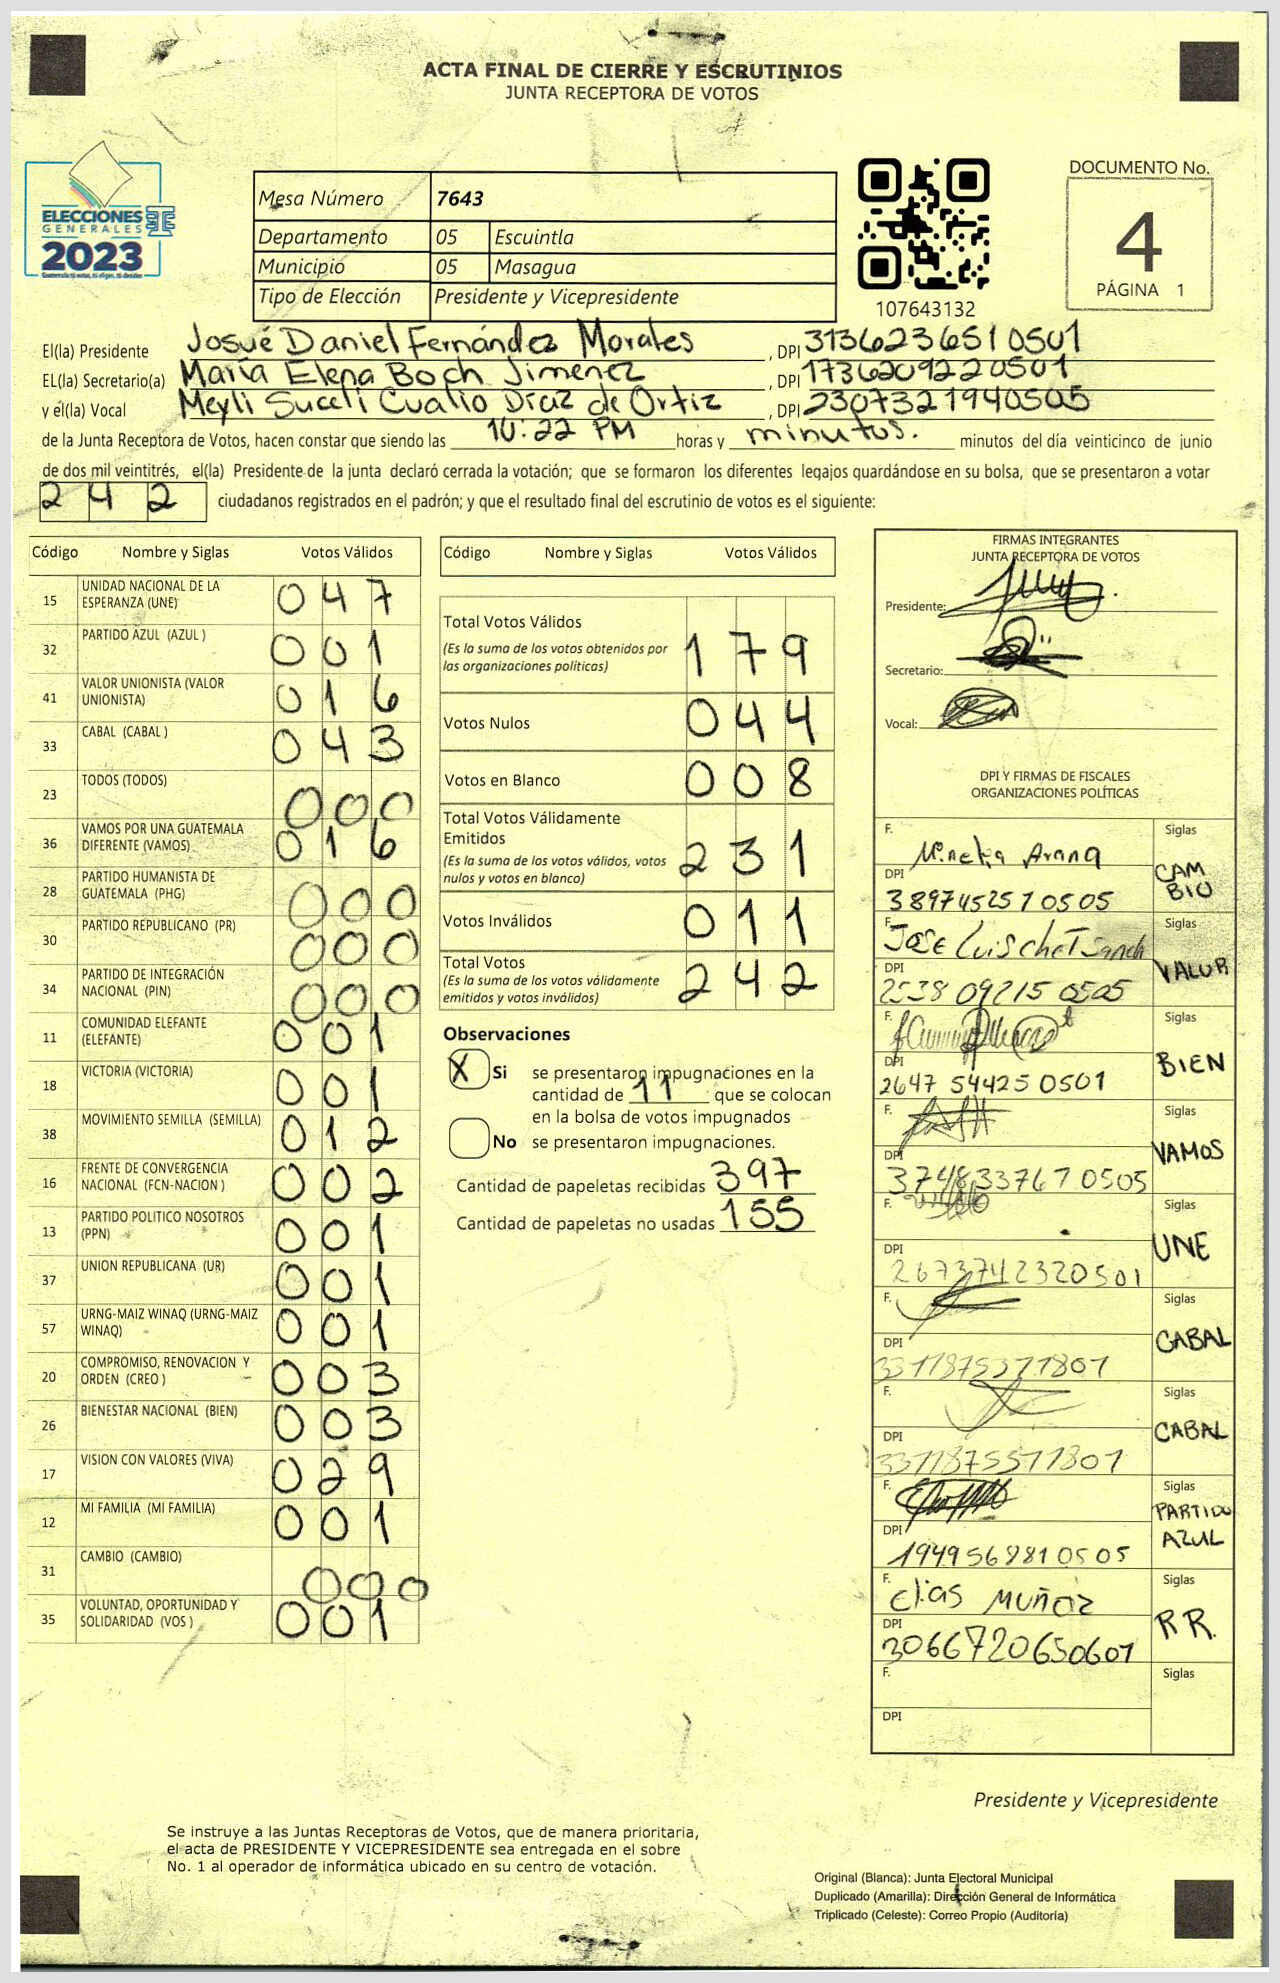 ACTA FINAL DE CIERRE Y ESCRUTINIOS
JUNTA RECEPTORA DE VOTOS
ELECCIONES
GENERALES
2023
Mesa Número 7643
Departamento 05 Escuintla
Municipio 05 Masagua
Tipo de Elección Presidente y Vicepresidente
107643132
DOCUMENTO No.
4
PÁGINA 1
El(la) Presidente Josué Daniel Fernández Morales, DPI 3136236510501
EL(la) Secretario(a) María Elena Boch Jimenez, DPI 1736209220501
y el(la) Vocal Meyli Suceli Cuatio Díaz de Ortiz, DPI 2307321940505
de la Junta Receptora de Votos, hacen constar que siendo las 10:22 PM horas y minutos. minutos del día veinticinco de junio
de dos mil veintitrés, el(la) Presidente de la junta declaró cerrada la votación; que se formaron los diferentes legajos guardándose en su bolsa, que se presentaron a votar
242 ciudadanos registrados en el padrón; y que el resultado final del escrutinio de votos es el siguiente:
Código Nombre y Siglas Votos Válidos
15 UNIDAD NACIONAL DE LA ESPERANZA (UNE) 047
32 PARTIDO AZUL (AZUL ) 001
41 VALOR UNIONISTA (VALOR UNIONISTA) 016
33 CABAL (CABAL ) 043
23 TODOS (TODOS) 000
36 VAMOS POR UNA GUATEMALA DIFERENTE (VAMOS) 016
28 PARTIDO HUMANISTA DE GUATEMALA (PHG) 000
30 PARTIDO REPUBLICANO (PR) 000
34 PARTIDO DE INTEGRACIÓN NACIONAL (PIN) 000
11 COMUNIDAD ELEFANTE (ELEFANTE) 001
18 VICTORIA (VICTORIA) 001
38 MOVIMIENTO SEMILLA (SEMILLA) 012
16 FRENTE DE CONVERGENCIA NACIONAL (FCN-NACION ) 002
13 PARTIDO POLITICO NOSOTROS (PPN) 001
37 UNION REPUBLICANA (UR) 001
57 URNG-MAIZ WINAQ (URNG-MAIZ WINAQ) 001
20 COMPROMISO, RENOVACION Y ORDEN (CREO ) 003
26 BIENESTAR NACIONAL (BIEN) 003
17 VISION CON VALORES (VIVA) 029
12 MI FAMILIA (MI FAMILIA) 001
31 CAMBIO (CAMBIO) 000
35 VOLUNTAD, OPORTUNIDAD Y SOLIDARIDAD (VOS ) 001
Código Nombre y Siglas Votos Válidos
Total Votos Válidos 179
(Es la suma de los votos obtenidos por
las organizaciones políticas)
Votos Nulos 044
Votos en Blanco 008
Total Votos Válidamente
Emitidos 231
(Es la suma de los votos válidos, votos
nulos y votos en blanco)
Votos Inválidos 011
Total Votos 242
(Es la suma de los votos válidamente
emitidos y votos inválidos)
Observaciones
X Si se presentaron impugnaciones en la
cantidad de 11 que se colocan
en la bolsa de votos impugnados
No se presentaron impugnaciones.
Cantidad de papeletas recibidas 397
Cantidad de papeletas no usadas 155
FIRMAS INTEGRANTES
JUNTA RECEPTORA DE VOTOS
Presidente:
Secretario:
Vocal:
DPI Y FIRMAS DE FISCALES
ORGANIZACIONES POLÍTICAS
F. Arana Siglas
DPI 3897452510505 CAMBIO
F. Jose Luis Siglas
DPI 2538 09215 0505 VALOR
F. Siglas
DPI 2647 54425 0501 BIEN
F. Siglas
DPI 3748337670505 VAMOS
F. Siglas
DPI 2673742320501 UNE
F. Siglas
DPI 3311875371801 CABAL
F. Siglas
DPI CABAL
F. Siglas
DPI 1949568810505 PARTIDO AZUL
F. Elias Muñoz Siglas
DPI 3066720650601 RR.
F. Siglas
DPI
Presidente y Vicepresidente
Se instruye a las Juntas Receptoras de Votos, que de manera prioritaria,
el acta de PRESIDENTE Y VICEPRESIDENTE sea entregada en el sobre
No. 1 al operador de informática ubicado en su centro de votación.
Original (Blanca): Junta Electoral Municipal
Duplicado (Amarilla): Dirección General de Informática
Triplicado (Celeste): Correo Propio (Auditoría)